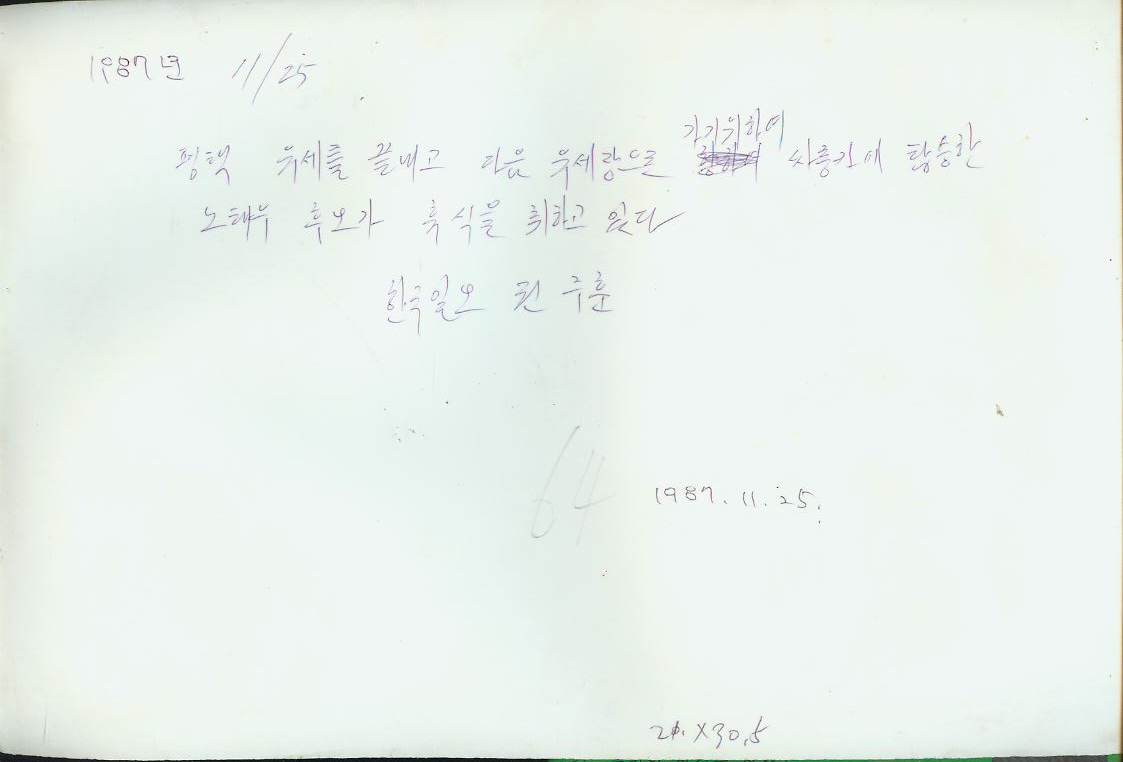 1987년 11/25
평택 유세를 끝내고 다음 유세장으로 가기위하여 승용차에 탑승한
노태우 후보가 휴식을 취하고 있다
한국일보 권주훈
64
1987. 11. 25.
21. X30.5